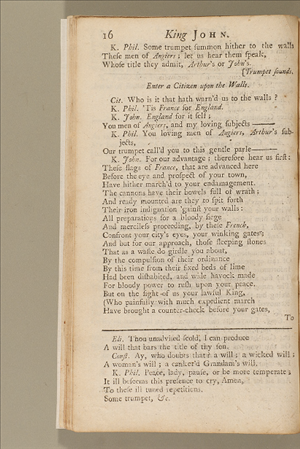 16 King JOHN.
K. Phil. Some trumpet summon hither to the walls
These men of Angiers; let us hear them speak,
Whose title they admit, Arthur's or John's.
[Trumpet sounds.
Enter a Citizen upon the Walls.
Cit. Who is it that hath warn'd us to the walls?
K. Phil. 'Tis France for England.
K. John. England for it self;
You men of Angiers, and my loving subjects——
K. Phil. You loving men of Angiers, Arthur's sub-
jects,
Our trumpet call'd you to this gentle parle——
K. John. For our advantage; therefore hear us first:
These flags of France, that are advanced here
Before the eye and prospect of your town,
Have hither march'd to your endamagement.
The cannons have their bowels full of wrath;
And ready mounted are they to spit forth
Their iron indignation 'gainst your walls:
All preparations for a bloody siege
And merciless proceeding, by these French,
Confront your city's eyes, your winking gates;
And but for our approach, those sleeping stones
That as a waste do girdle you about,
By the compulsion of their ordinance
By this time from their fixed beds of lime
Had been dishabited, and wide havock made
For bloody power to rush upon your peace.
But on the sight of us your lawful King,
(Who painfully with much expedient march
Have brought a counter-check before your gates,
To
Eli. Thou unadvised scold, I can produce
A will that bars the title of thy son.
Const. Ay, who doubts that? a will; a wicked will;
A woman's will; a canker'd Grandam's will.
K. Phil. Peace, lady, pause, or be more temperate;
It ill beseems this presence to cry, Amen,
To these ill tuned repetitions.
Some trumpet, &c.